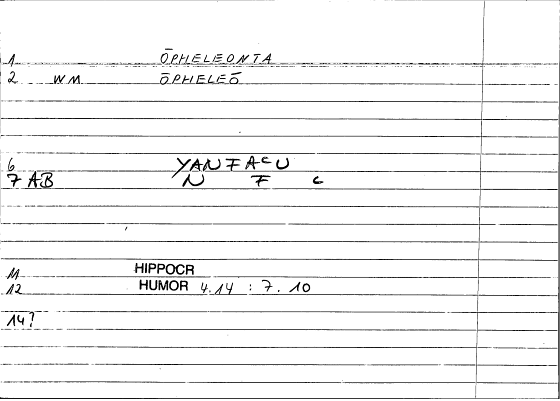 1 ŌPHELEONTA
2 WM ŌPHELEŌ
6 YANFACU
7 AB N F C
11 HIPPOCR
12 HUMOR 4.14 : 7.10
14?